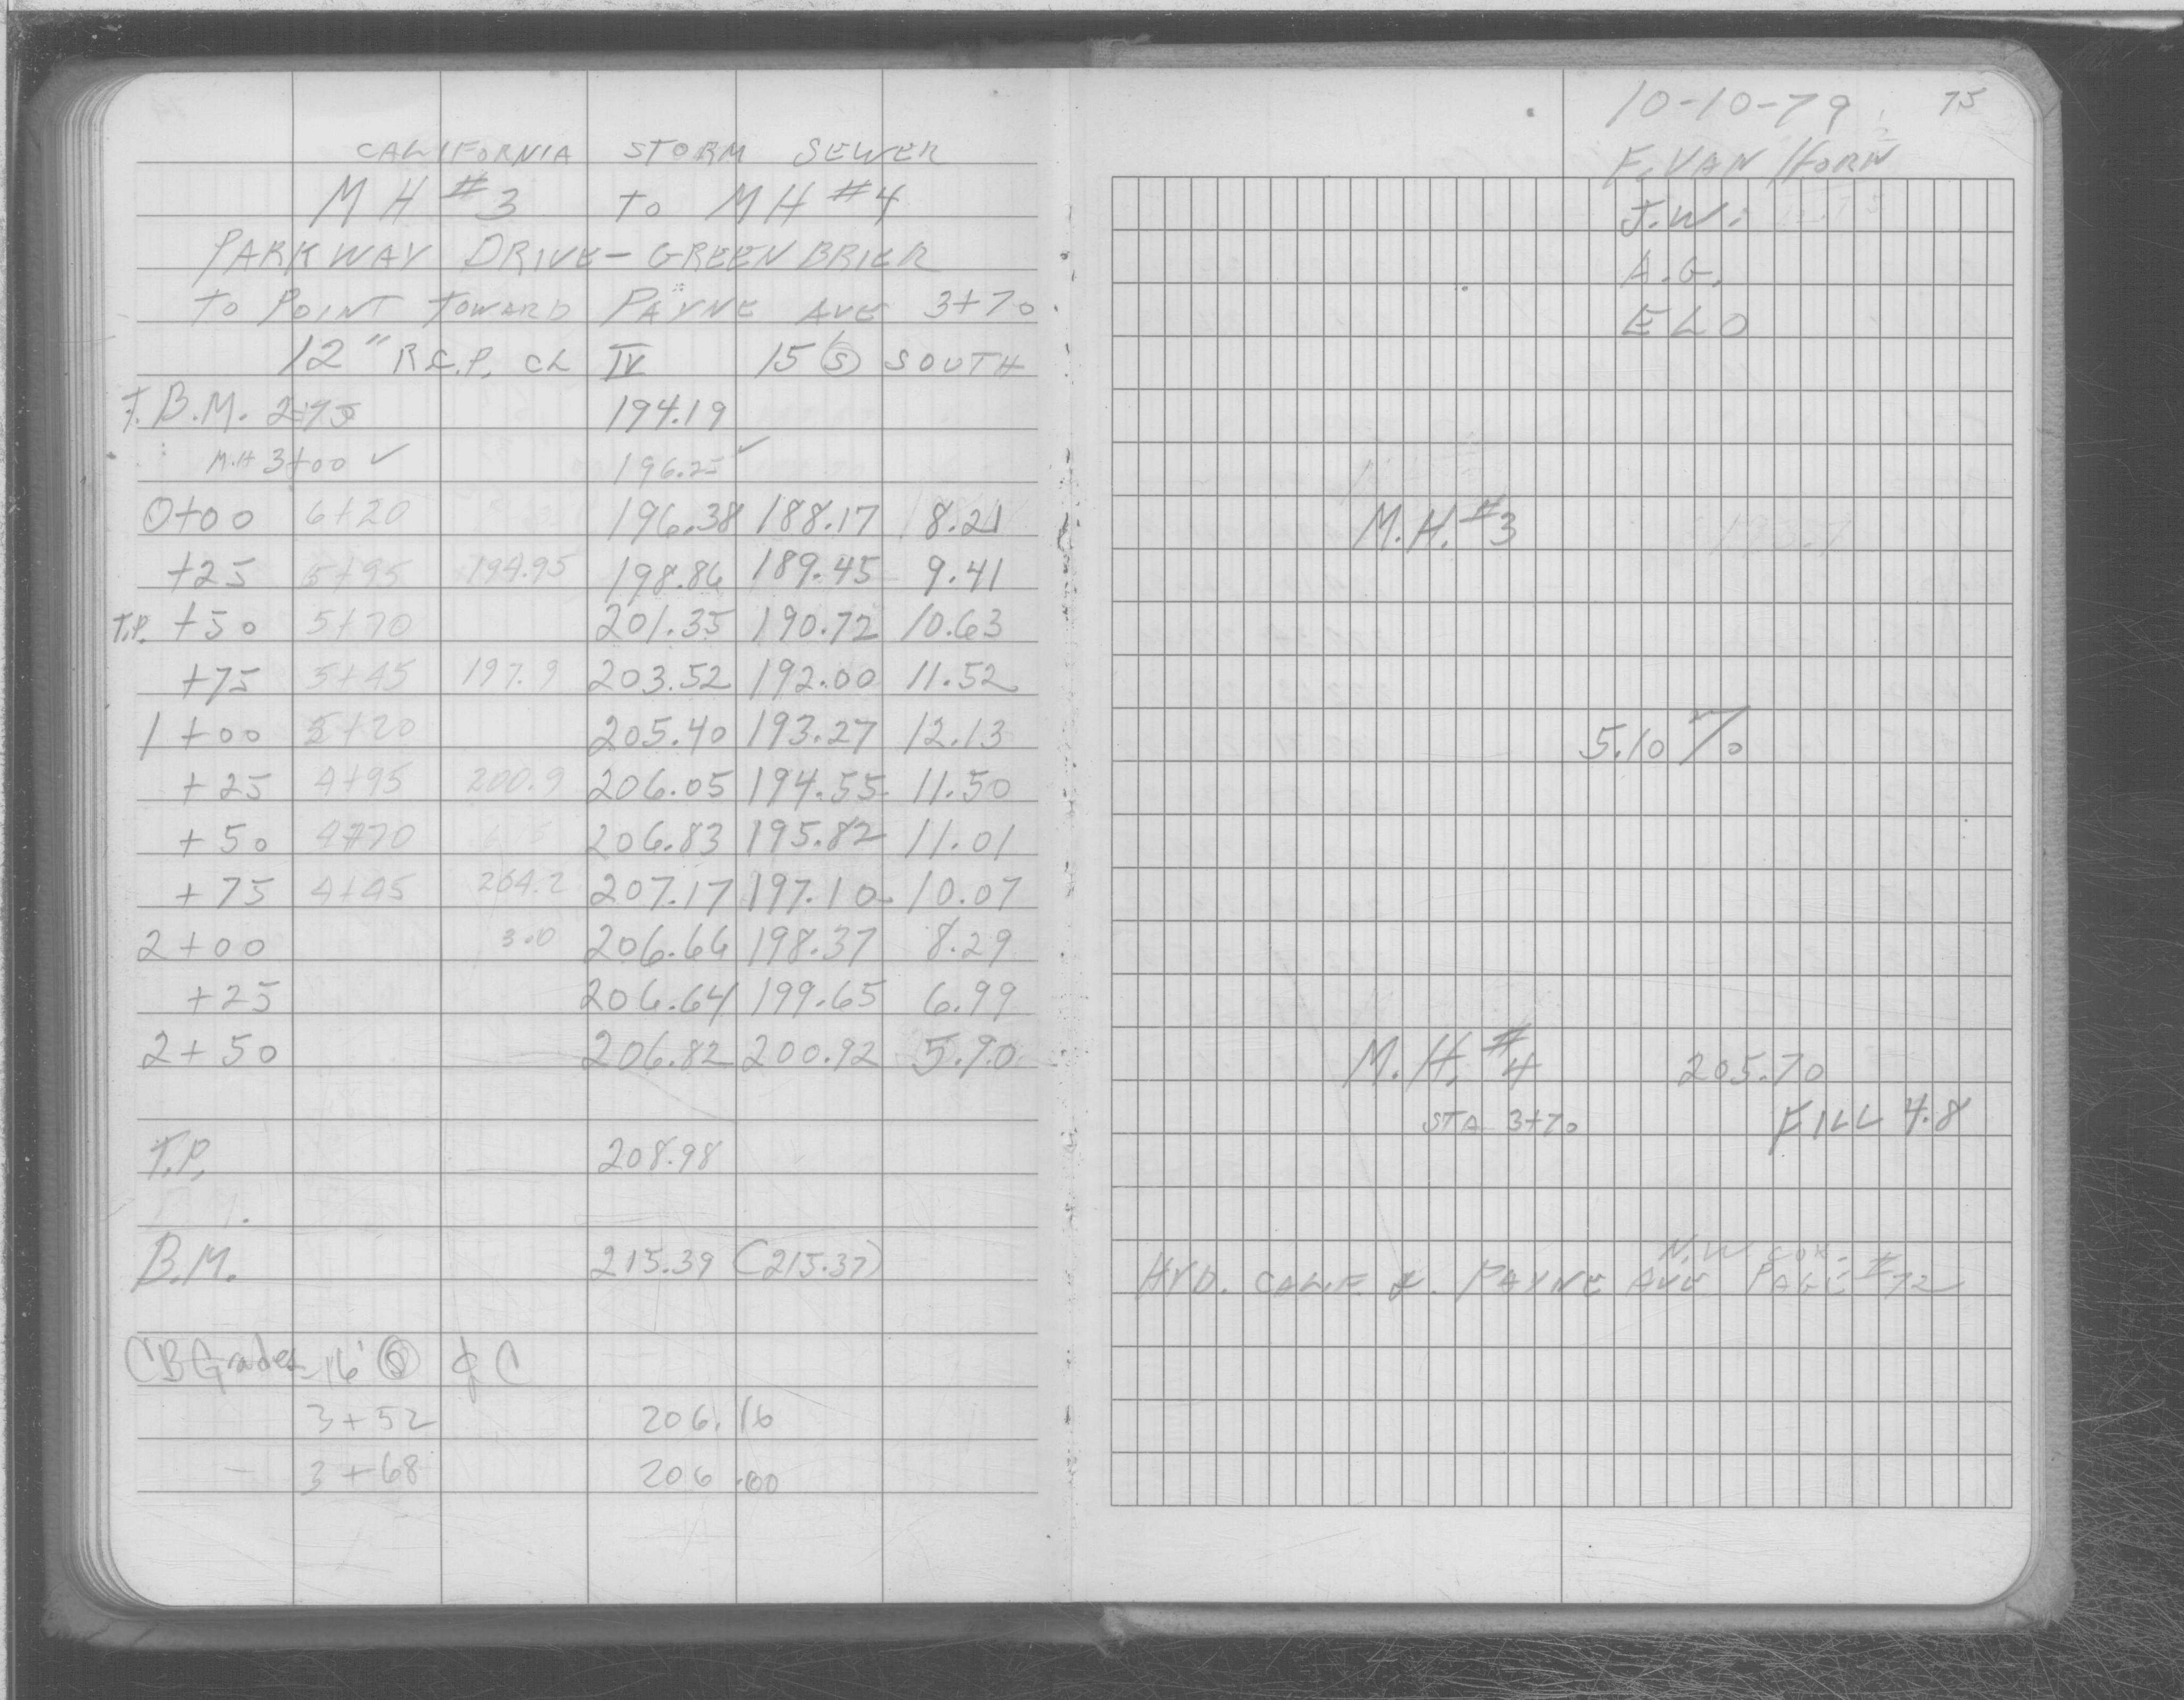 CALIFORNIA STORM SEWER
MH #3 TO MH #4
PARKWAY DRIVE - GREENBRIER
TO POINT TOWARD PAYNE AVE 3+70
12" R.C.P. CL IV 15' (S) SOUTH
T.B.M. 2+75 194.19
M.H 3+00 ✓ 196.25 ✓
0+00 6+20 196.38 188.17 8.21
+25 5+95 194.95 198.86 189.45 9.41
T.P. +50 5+70 201.35 190.72 10.63
+75 5+45 197.9 203.52 192.00 11.52
1+00 5+20 205.40 193.27 12.13
+25 4+95 200.9 206.05 194.55 11.50
+50 4+70 206.83 195.82 11.01
+75 4+45 204.2 207.17 197.10 10.07
2+00 3.0 206.66 198.37 8.29
+25 206.64 199.65 6.99
2+50 206.82 200.92 5.90
T.P. 208.98
B.M. 215.39 (215.37)
CB Grades 16'
3+52 206.16
3+68 206.00
10-10-79 75
F. VAN HORN
J.W.
A.G.
ELO
M.H. #3
5.10 %
M.H. #4 205.70
STA 3+70 FILL 4.8
N.W COR.
HYD. CALIF. & PAYNE AVE PAGE #72